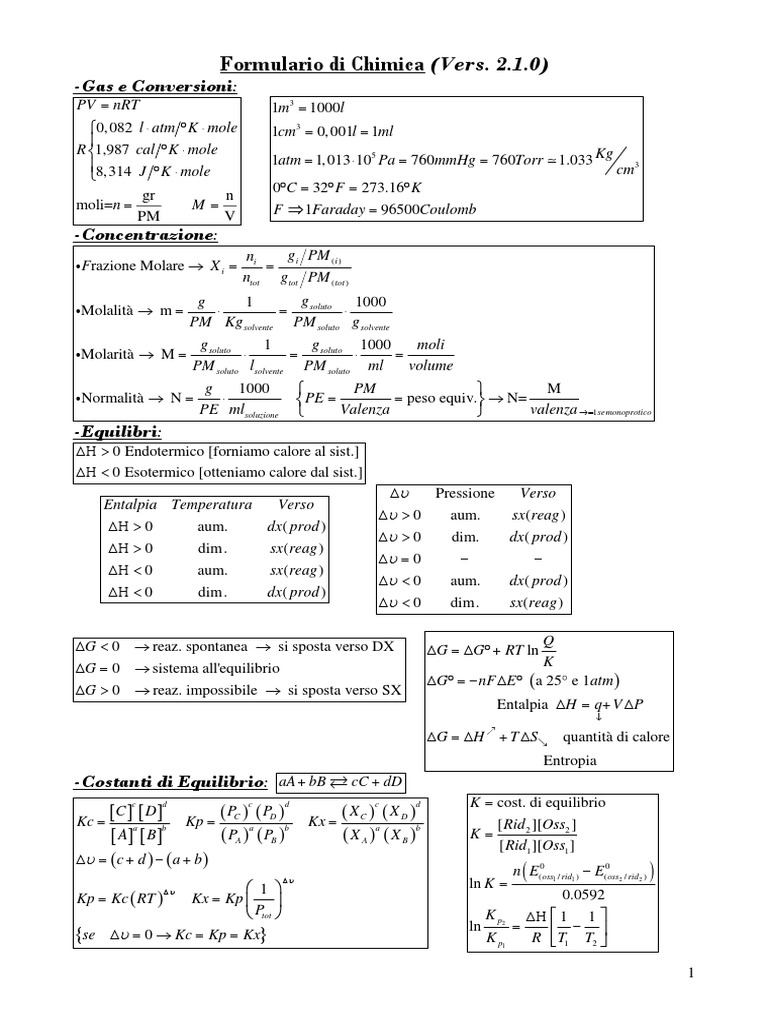 Formulario di Chimica (Vers. 2.1.0)
-Gas e Conversioni:
PV = nRT
R { 0,082 l·atm/°K·mole
1,987 cal/°K·mole
8,314 J/°K·mole
moli=n = gr/PM M = n/V
1m³ = 1000l
1cm³ = 0,001l = 1ml
1atm = 1,013·10⁵ Pa = 760mmHg = 760Torr ≃ 1.033 Kg/cm³
0°C = 32°F = 273.16°K
F ⇒ 1Faraday = 96500Coulomb
-Concentrazione:
•Frazione Molare → X_i = n_i/n_tot = (g_i/PM_(i))/(g_tot/PM_(tot))
•Molalità → m = g/PM · 1/Kg_solvente = g_soluto/PM_soluto · 1000/g_solvente
•Molarità → M = g_soluto/PM_soluto · 1/l_solvente = g_soluto/PM_soluto · 1000/ml = moli/volume
•Normalità → N = g/PE · 1000/ml_soluzione {PE = PM/Valenza = peso equiv.} → N= M/valenza_→=1 se monoprotico
-Equilibri:
ΔH > 0 Endotermico [forniamo calore al sist.]
ΔH < 0 Esotermico [otteniamo calore dal sist.]
Entalpia Temperatura Verso
ΔH > 0 aum. dx(prod)
ΔH > 0 dim. sx(reag)
ΔH < 0 aum. sx(reag)
ΔH < 0 dim. dx(prod)
Δυ Pressione Verso
Δυ > 0 aum. sx(reag)
Δυ > 0 dim. dx(prod)
Δυ = 0 − −
Δυ < 0 aum. dx(prod)
Δυ < 0 dim. sx(reag)
ΔG < 0 → reaz. spontanea → si sposta verso DX
ΔG = 0 → sistema all'equilibrio
ΔG > 0 → reaz. impossibile → si sposta verso SX
ΔG = ΔG° + RT ln Q/K
ΔG° = −nFΔE° (a 25° e 1atm)
Entalpia ΔH = q+VΔP
↓
ΔG = ΔH↗ + TΔS↘ quantità di calore
Entropia
-Costanti di Equilibrio: aA + bB ⇄ cC + dD
Kc = [C]^c[D]^d/[A]^a[B]^b Kp = (P_C)^c(P_D)^d/(P_A)^a(P_B)^b Kx = (X_C)^c(X_D)^d/(X_A)^a(X_B)^b
Δυ = (c + d) − (a + b)
Kp = Kc(RT)^Δυ Kx = Kp(1/P_tot)^Δυ
{se Δυ = 0 → Kc = Kp = Kx}
K = cost. di equilibrio
K = [Rid₂][Oss₂]/[Rid₁][Oss₁]
ln K = n(E⁰_(oss₁/rid₁) − E⁰_(oss₂/rid₂))/0.0592
ln K_p₂/K_p₁ = ΔH/R [1/T₁ − 1/T₂]
1